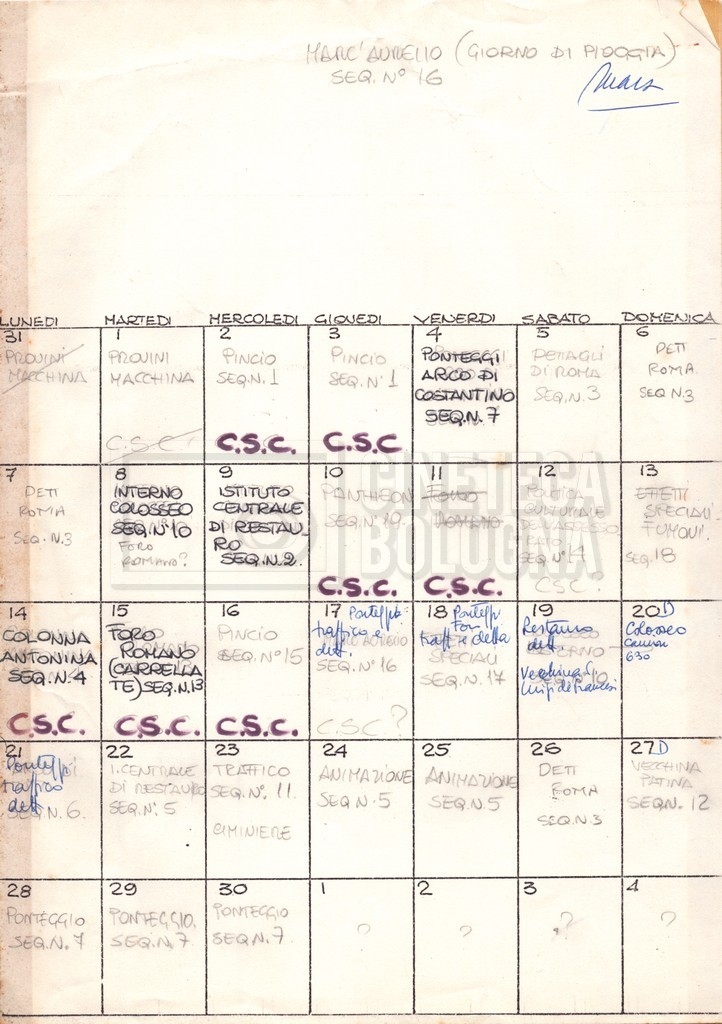 MARC'AURELIO (GIORNO DI PIOGGIA)
SEQ. N° 16
LUNEDI MARTEDI MERCOLEDI GIOVEDI VENERDI SABATO DOMENICA
31
PROVINI
MACCHINA
1
PROVINI
MACCHINA
C.S.C.
2
PINCIO
SEQ.N. 1
C.S.C.
3
PINCIO
SEQ. N° 1
C.S.C
4
PONTEGGI
ARCO DI
COSTANTINO
SEQ.N. 7
5
DETTAGLI
DI ROMA
SEQ.N. 3
6
DETT
ROMA
SEQ N.3
7
DETT
ROMA
SEQ. N.3
8
INTERNO
COLOSSEO
SEQ N° 10
FORO
ROMANO?
9
ISTITUTO
CENTRALE
DI RESTAU-
RO
SEQ.N.2.
10
PANTHEON
SEQ.N°
C.S.C.
11
FORO
ROMANO
C.S.C.
12
POLITICA
CULTURALE
DELL'ASSESSO
RATO
SEQ N° 14
C.S.C.
13
EFFETTI
SPECIALI
FUMOGI.
SEQ. 18
14
COLONNA
ANTONINA
SEQ N. 4
C.S.C.
15
FORO
ROMANO
(CARRELLA
TE) SEQ.N.13
C.S.C.
16
PINCIO
SEQ. N° 15
C.S.C.
17 Ponteggi
traffico e
dett.
MARC'AURELIO
SEQ. N° 16
C.S.C?
18 Ponteggi
SPECIALI
SEQ.N. 17
19
Restauro
dett.
Vecchina S.
Luigi de Francesi
20 D
Colosseo
630
21
Ponteggi
traffico
dett
SEQ.N. 6.
22
I. CENTRALE
DI RESTAURO
SEQ. N. 5
23
TRAFFICO
SEQ. N°. 11.
CIMINIERE
24
ANIMAZIONE
SEQ N. 5
25
ANIMAZIONE
SEQ N. 5
26
DETT
ROMA
SEQ.N.3
27 D
VECCHINA
PATINA
SEQ N. 12
28
PONTEGGIO
SEQ.N. 7
29
PONTEGGIO.
SEQ.N. 7
30
PONTEGGIO
SEQ.N. 7
1
?
2
?
3
?
4
?
CINETECA
BOLOGNA